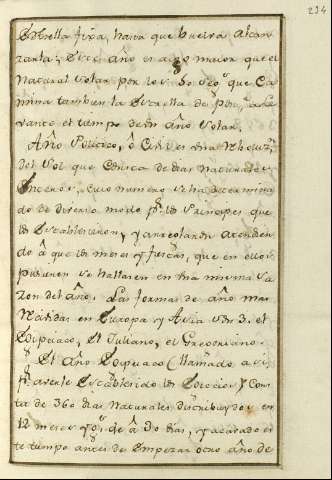 234
Estrella fixa, hasta que buelva alcan
zarla; Este año es algo maior que el
natural solar por los 50. seg.s que ca
mina tambien la Estrella de Pon.te a Le
vante el tiempo de un año solar.
Año Politico, ô Civil es una
del sol que consta de dias naturales
enteros, cuio numero se ha determina
do de diverso modo p.r los Principes que
los establecieron, y arreglaron atendien
do â que los meses y fiestas, que en ellos
pusieron se hallasen en una misma sa
zon del año. Las formas de año mas
recividas en Europa y Asia son 3. el
Egipciaco, el Juliano, el Gregoriano.
El Año Egipciaco (llamado asi
p.r averle establecido los Egipcios) cons
ta de 360 dias naturales distribuydos en
12 meses de â 30 dias, y acavado es
te tiempo antes de empezar otro año de